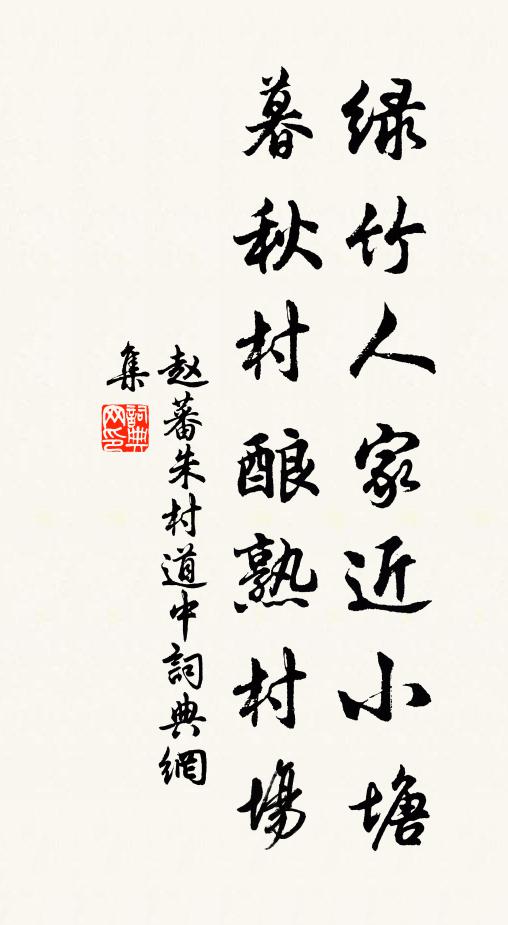 绿竹人家近小塘
暮秋村酿熟村場
赵蕃朱村道中詞典網
集
詞典网印